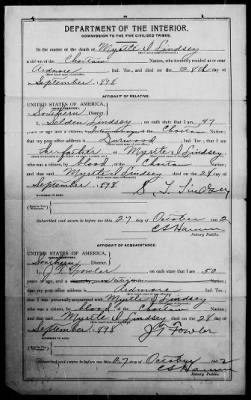 DEPARTMENT OF THE INTERIOR.
COMMISSION TO THE FIVE CIVILIZED TRIBES.
In the matter of the death of Myrtle I Lindsey
a citizen of the Choctaw Nation, who formerly resided at or near
Ardmore Ind. Ter., and died on the 28th day of
September, 1898
AFFIDAVIT OF RELATIVE.
UNITED STATES OF AMERICA,
Indian Territory,
Southern District.
I, Selden Lindsey, on oath state that I am 47
years of age and a citizen, of the Choctaw
Nation; that my post office address is Ind. Ter.; that I am
her father of Myrtle I Lindsey
who was a citizen, by blood, of the Choctaw Nation
and that said Myrtle I Lindsey died on the 28 day of
September, 1898
S. T. Lindsey
Subscribed and sworn to before me this 27 day of October 1902
Notary Public.
AFFIDAVIT OF ACQUAINTANCE.
UNITED STATES OF AMERICA,
Indian Territory,
Southern District.
I, J T Fowler, on oath state that I am 50
years of age, and a citizen
that my post office address is Ardmore Ind. Ter.;
that I was personally acquainted with Myrtle I Lindsey
who was a citizen, by blood, of the Choctaw Nation;
and that said Myrtle I Lindsey died on the 28 day of
September, 1898
J T Fowler
Subscribed and sworn to before me this 27 day of October 1902
Notary Public.